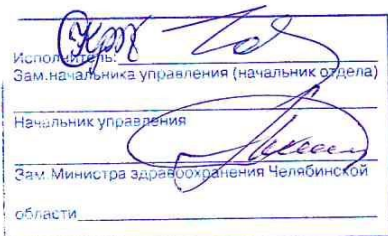 Исполнитель:
Зам.начальника управления (начальник отдела)
Начальник управления
Зам. Министра здравоохранения Челябинской
области